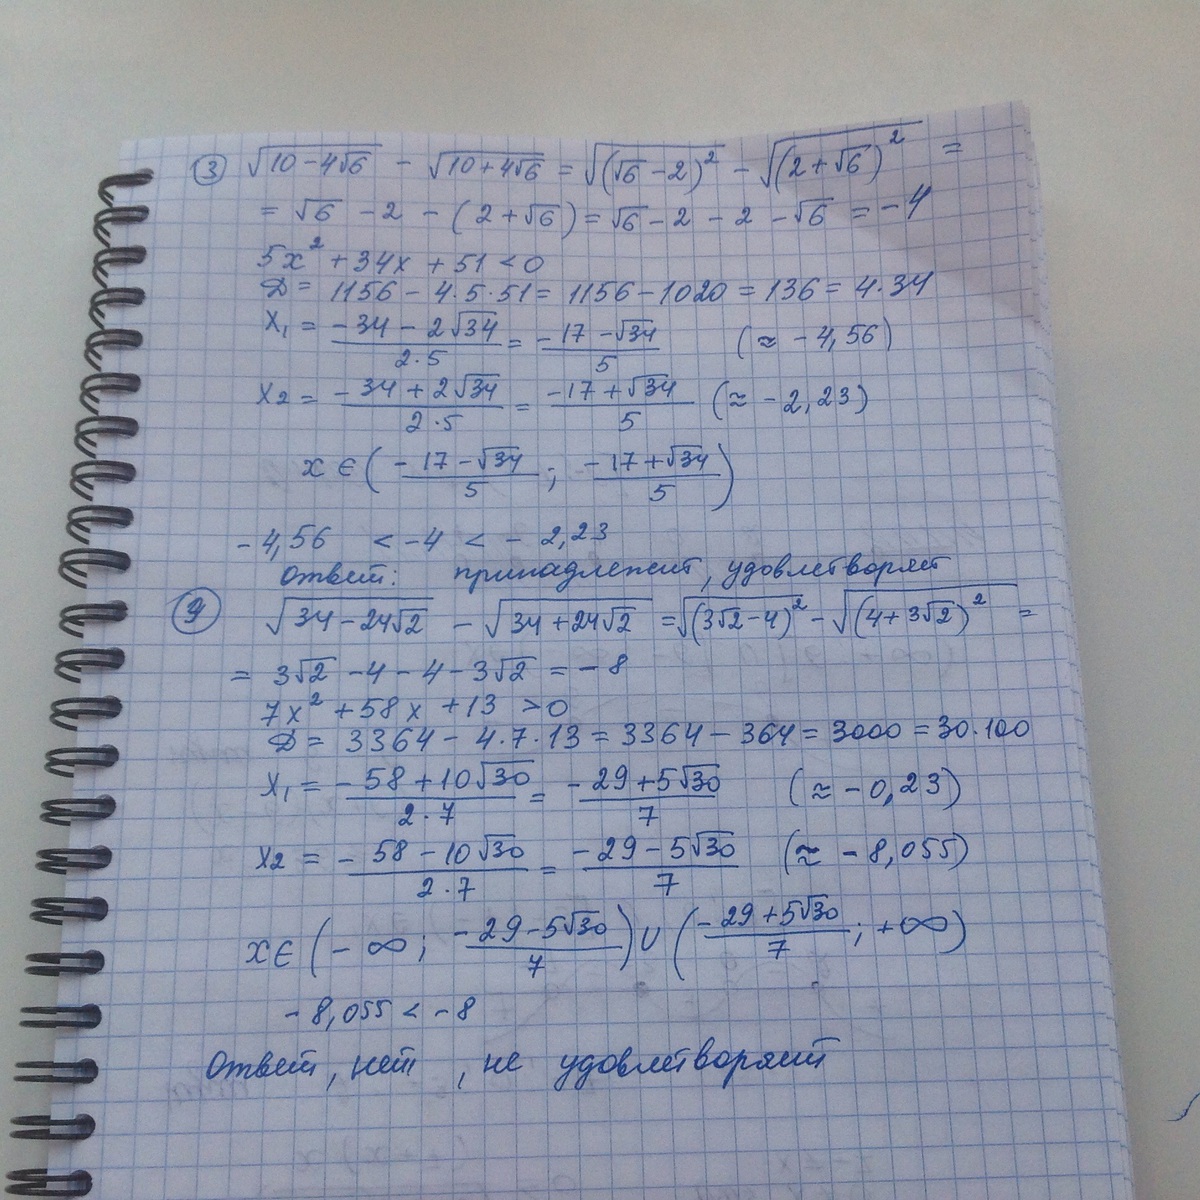 ③ √(10-4√6) - √(10+4√6) = √((√6-2)²) - √((2+√6)²) =
= √6 -2 - (2+√6) = √6 - 2 - 2 - √6 = -4
5x² + 34x + 51 < 0
D = 1156 - 4·5·51 = 1156 - 1020 = 136 = 4·34
x₁ = (-34 - 2√34)/(2·5) = (-17 - √34)/5 (≈ -4,56)
x₂ = (-34 + 2√34)/(2·5) = (-17 + √34)/5 (≈ -2,23)
x ∈ ((-17 - √34)/5 ; (-17 + √34)/5)
-4,56 < -4 < -2,23
Ответ: принадлежит, удовлетворяет
④ √(34-24√2) - √(34+24√2) = √((3√2-4)²) - √((4+3√2)²) =
= 3√2 - 4 - 4 - 3√2 = -8
7x² + 58x + 13 > 0
D = 3364 - 4·7·13 = 3364 - 364 = 3000 = 30·100
x₁ = (-58 + 10√30)/(2·7) = (-29 + 5√30)/7 (≈ -0,23)
x₂ = (-58 - 10√30)/(2·7) = (-29 - 5√30)/7 (≈ -8,055)
x ∈ (-∞; (-29 - 5√30)/7) ∪ ((-29 + 5√30)/7; +∞)
-8,055 < -8
Ответ, нет, не удовлетворяет